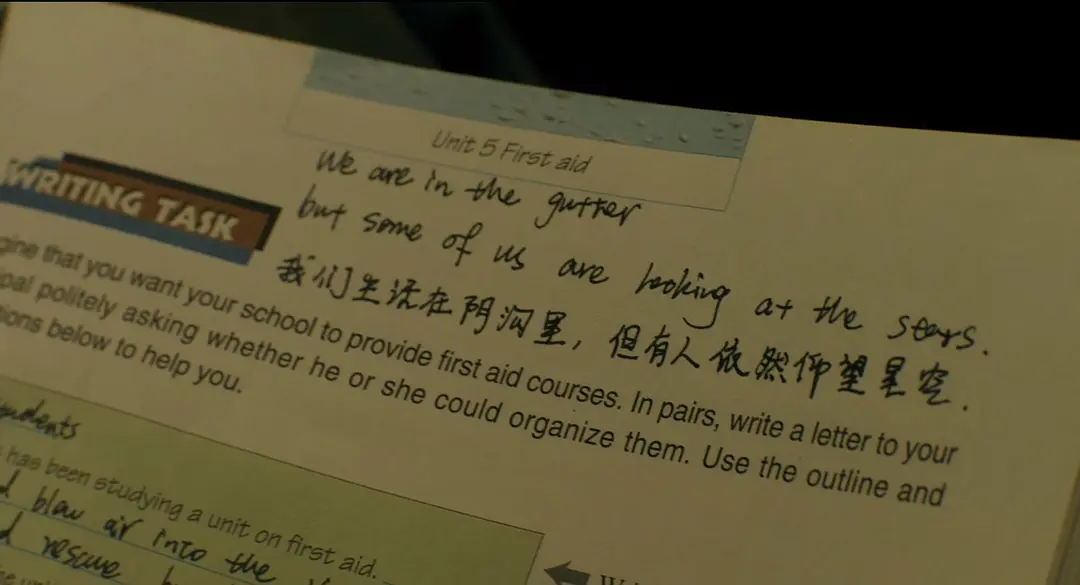 Unit 5 First aid
We are in the gutter
but some of us are looking at the stars.
我们生活在阴沟里，但有人依然仰望星空.
WRITING TASK
that you want your school to provide first aid courses. In pairs, write a letter to your
politely asking whether he or she could organize them. Use the outline and
below to help you.
has been studying a unit on first aid.
blow air into the
rescue